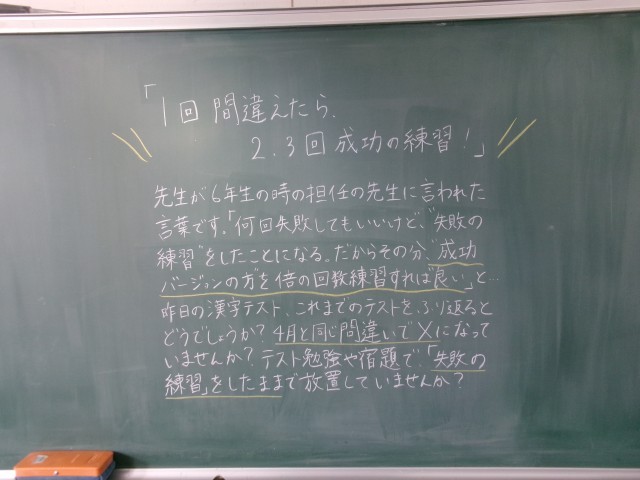 「1回 間違えたら、
2、3回 成功の練習！」
先生が6年生の時の担任の先生に言われた
言葉です。「何回失敗してもいいけど、"失敗の
練習"をしたことになる。だからその分、成功
バージョンの方を倍の回数練習すれば良い」と…
昨日の漢字テスト、これまでのテストをふり返ると
どうでしょうか？4月と同じ間違いで×になって
いませんか？テスト勉強や宿題で、「失敗の
練習」をしたままで放置していませんか？